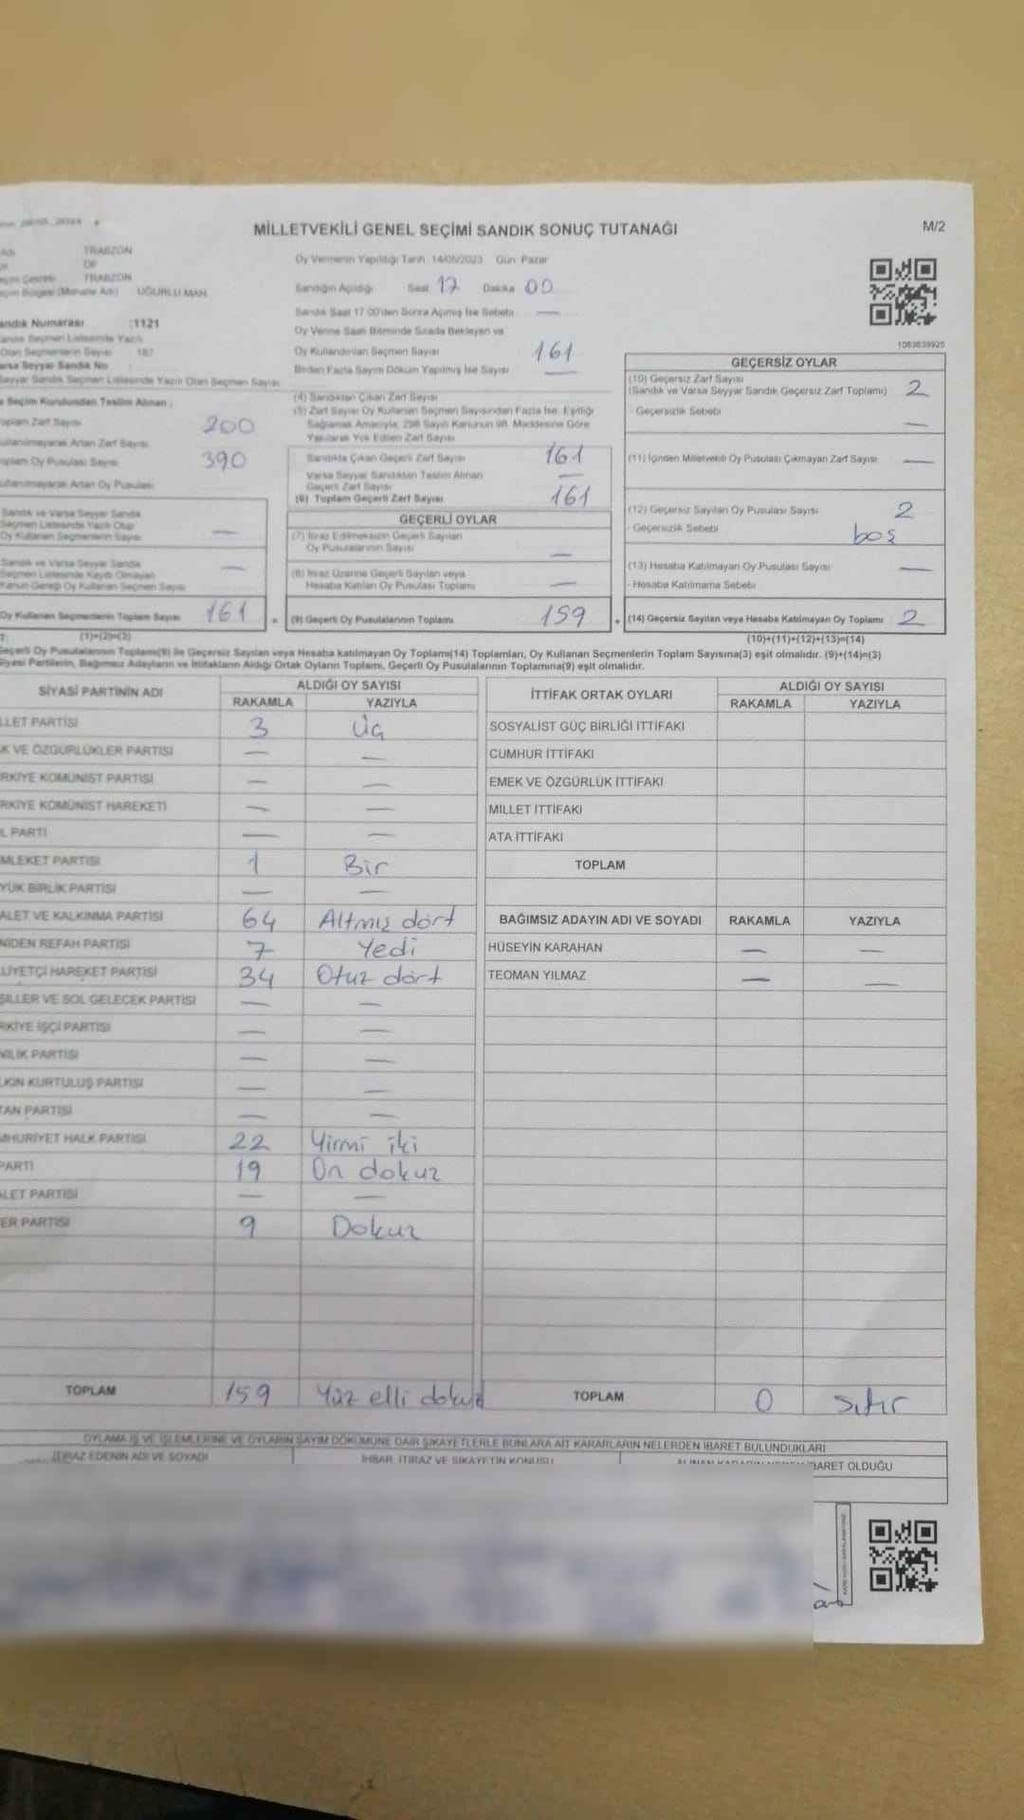 MİLLETVEKİLİ GENEL SEÇİMİ SANDIK SONUÇ TUTANAĞI
M/2
TRABZON
OF
TRABZON
UĞURLU MAH.
Oy Vermenin Yapıldığı Tarih 14/05/2023 Gün Pazar
Sandığın Açıldığı Saat 17 Dakika 00
Sandık Saat 17 00'den Sonra Açılmış İse Sebebi —
Oy Verme Saati Bitiminde Sırada Bekleyen ve
Oy Kullandırılan Seçmen Sayısı 161
Birden Fazla Sayım Döküm Yapılmış İse Sayısı —
andık Numarası :1121
187
Seyyar Sandık Seçmen Listesinde Yazılı Olan Seçmen Sayısı
e Seçim Kurulundan Teslim Alınan ;
oplam Zarf Sayısı 200
ullanılmayarak Artan Zarf Sayısı
oplam Oy Pusulası Sayısı 390
ullanılmayarak Artan Oy Pusulası
Sandık ve Varsa Seyyar Sandık
Seçmen Listesinde Yazılı Olup
Oy Kullanan Seçmenlerin Sayısı —
Sandık ve Varsa Seyyar Sandık
Seçmen Listesinde Kayıtlı Olmayan
Kanun Gereği Oy Kullanan Seçmen Sayısı —
Oy Kullanan Seçmenlerin Toplam Sayısı 161
(1)+(2)=(3)
(4) Sandıktan Çıkan Zarf Sayısı
(5) Zarf Sayısı Oy Kullanan Seçmen Sayısından Fazla İse, Eşitliği
Sağlamak Amacıyla, 298 Sayılı Kanunun 98. Maddesine Göre
Yakılarak Yok Edilen Zarf Sayısı
Sandıkta Çıkan Geçerli Zarf Sayısı 161
Varsa Seyyar Sandıktan Teslim Alınan
Geçerli Zarf Sayısı —
(6) Toplam Geçerli Zarf Sayısı 161
GEÇERLİ OYLAR
(7) İtiraz Edilmeksizin Geçerli Sayılan
Oy Pusulalarının Sayısı —
(8) İtiraz Üzerine Geçerli Sayılan veya
Hesaba Katılan Oy Pusulası Toplamı —
(9) Geçerli Oy Pusulalarının Toplamı 159
1083839925
GEÇERSİZ OYLAR
(10) Geçersiz Zarf Sayısı
(Sandık ve Varsa Seyyar Sandık Geçersiz Zarf Toplamı) 2
- Geçersizlik Sebebi —
(11) İçinden Milletvekili Oy Pusulası Çıkmayan Zarf Sayısı —
(12) Geçersiz Sayılan Oy Pusulası Sayısı 2
- Geçersizlik Sebebi boş
(13) Hesaba Katılmayan Oy Pusulası Sayısı —
- Hesaba Katılmama Sebebi
(14) Geçersiz Sayılan veya Hesaba Katılmayan Oy Toplamı 2
(10)+(11)+(12)+(13)=(14)
Geçerli Oy Pusulalarının Toplamı(9) ile Geçersiz Sayılan veya Hesaba katılmayan Oy Toplamı(14) Toplamları, Oy Kullanan Seçmenlerin Toplam Sayısına(3) eşit olmalıdır. (9)+(14)=(3)
Siyasi Partilerin, Bağımsız Adayların ve İttifakların Aldığı Ortak Oyların Toplamı, Geçerli Oy Pusulalarının Toplamına(9) eşit olmalıdır.
SİYASİ PARTİNİN ADI ALDIĞI OY SAYISI
RAKAMLA YAZIYLA
LLET PARTİSİ 3 Üç
K VE ÖZGÜRLÜKLER PARTİSİ — —
RKİYE KOMÜNİST PARTİSİ — —
RKİYE KOMÜNİST HAREKETİ — —
L PARTİ — —
MLEKET PARTİSİ 1 Bir
YÜK BİRLİK PARTİSİ — —
ALET VE KALKINMA PARTİSİ 64 Altmış dört
NİDEN REFAH PARTİSİ 7 Yedi
LLİYETÇİ HAREKET PARTİSİ 34 Otuz dört
ŞİLLER VE SOL GELECEK PARTİSİ — —
RKİYE İŞÇİ PARTİSİ — —
NİLİK PARTİSİ — —
LKIN KURTULUŞ PARTİSİ — —
TAN PARTİSİ — —
MHURİYET HALK PARTİSİ 22 Yirmi iki
PARTİ 19 On dokuz
ALET PARTİSİ — —
ER PARTİSİ 9 Dokuz
TOPLAM 159 Yüz elli dokuz
İTTİFAK ORTAK OYLARI ALDIĞI OY SAYISI
RAKAMLA YAZIYLA
SOSYALİST GÜÇ BİRLİĞİ İTTİFAKI
CUMHUR İTTİFAKI
EMEK VE ÖZGÜRLÜK İTTİFAKI
MİLLET İTTİFAKI
ATA İTTİFAKI
TOPLAM
BAĞIMSIZ ADAYIN ADI VE SOYADI RAKAMLA YAZIYLA
HÜSEYİN KARAHAN — —
TEOMAN YILMAZ — —
TOPLAM 0 Sıfır
OYLAMA İŞ VE İŞLEMLERİNE VE OYLARIN SAYIM DÖKÜMÜNE DAİR ŞİKAYETLERLE BUNLARA AİT KARARLARIN NELERDEN İBARET BULUNDUKLARI
İTİRAZ EDENİN ADI VE SOYADI
İHBAR, İTİRAZ VE ŞİKAYETİN KONUSU
BARET OLDUĞU